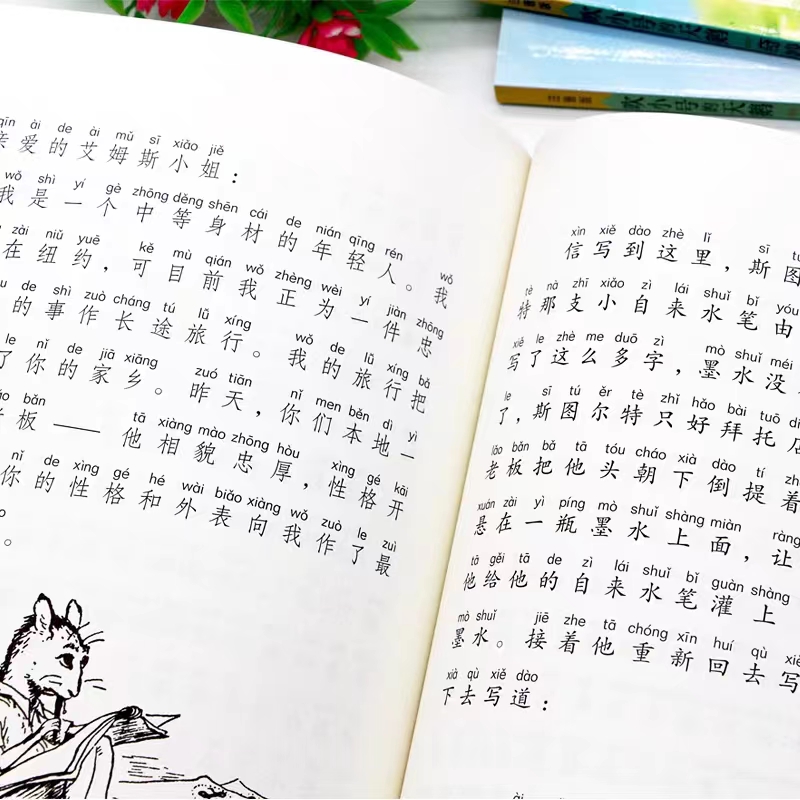 吹小号的天鹅
吹小号的天鹅
qīn ài de ài mǔ sī xiǎo jiě
亲爱的艾姆斯小姐：
wǒ shì yí gè zhōng děng shēn cái de nián qīng rén wǒ
我是一个中等身材的年轻人。我
zài niǔ yuē kě mù qián wǒ zhèng wèi yí jiàn zhōng
在纽约，可目前我正为一件忠
de shì zuò cháng tú lǚ xíng wǒ de lǚ xíng bǎ
的事作长途旅行。我的旅行把
le nǐ de jiā xiāng zuó tiān nǐ men běn dì yì
了你的家乡。昨天，你们本地一
lǎo bǎn tā xiàng mào zhōng hòu xìng gé kāi
老板——他相貌忠厚，性格开
nǐ de xìng gé hé wài biǎo xiàng wǒ zuò le zuì
你的性格和外表向我作了最
。
xìn xiě dào zhè lǐ sī tú
信写到这里，斯图
tè nà zhī xiǎo zì lái shuǐ bǐ yóu
特那支小自来水笔由
xiě le zhè me duō zì mò shuǐ méi
写了这么多字，墨水没
le sī tú ěr tè zhǐ hǎo bài tuō diàn
了，斯图尔特只好拜托店
lǎo bǎn bǎ tā tóu cháo xià dào tí zhe
老板把他头朝下倒提着
xuán zài yì píng mò shuǐ shàng miàn ràng
悬在一瓶墨水上面，让
tā gěi tā de zì lái shuǐ bǐ guàn shàng
他给他的自来水笔灌上
mò shuǐ jiē zhe tā chóng xīn huí qù xiě
墨水。接着他重新回去写
xià qù xiě dào
下去写道：